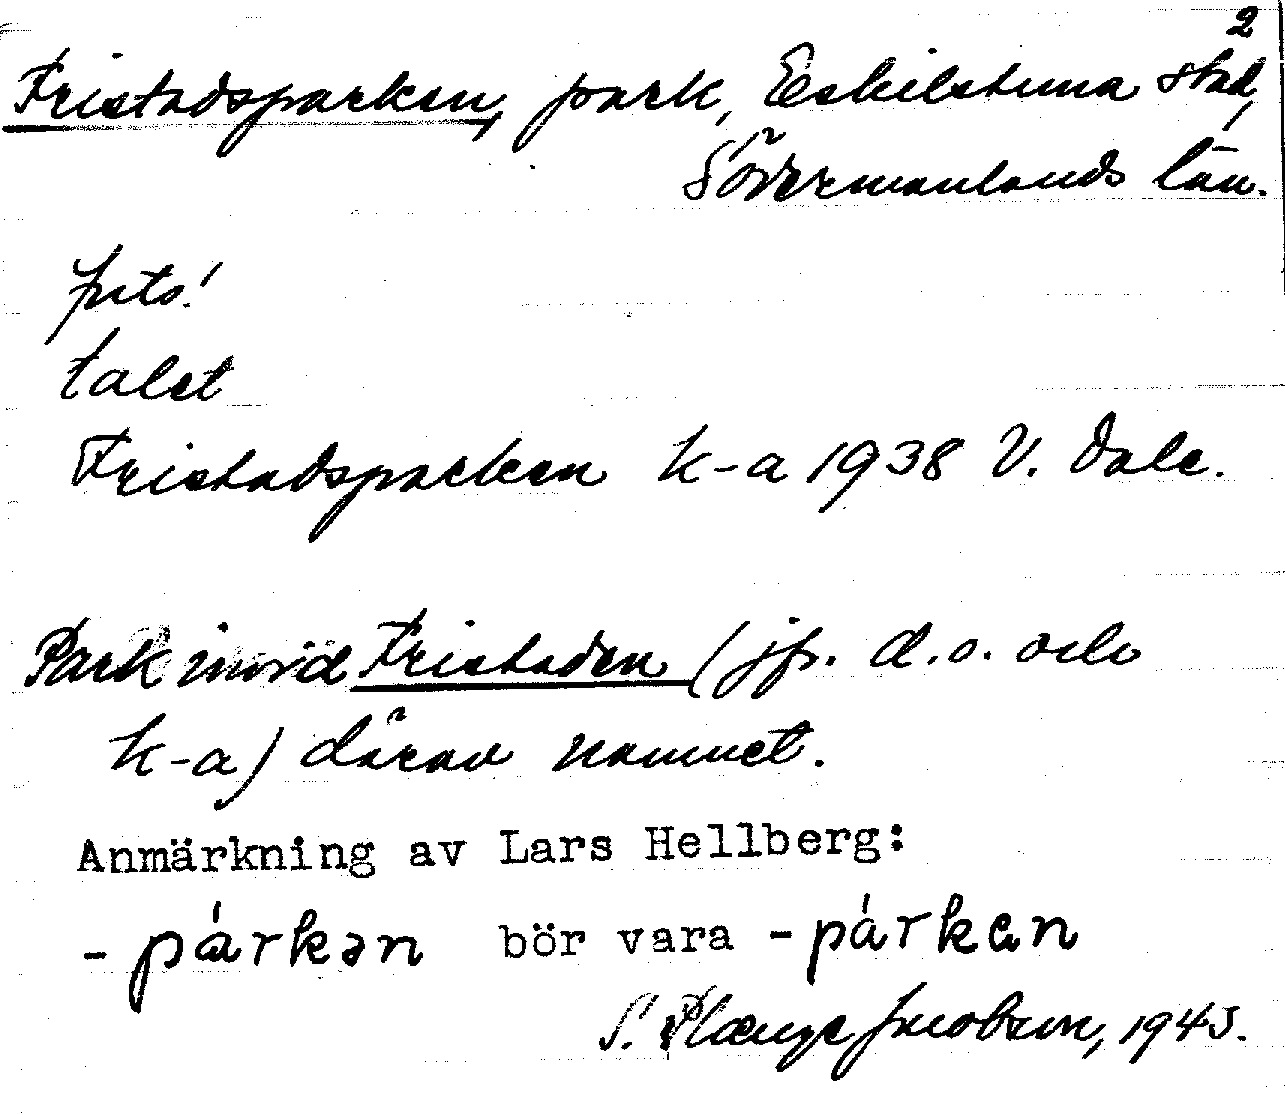 2
Fristadsparken, park, Eskilstuna stad,
Södermanlands län.
talet
Fristadsparken k-a 1938 V. Dale.
Park invid Fristaden (jfr. d.o. och
k-a) därav namnet.
Anmärkning av Lars Hellberg:
-párkən bör vara -párkan
S. Plænge Jacobson, 1945.